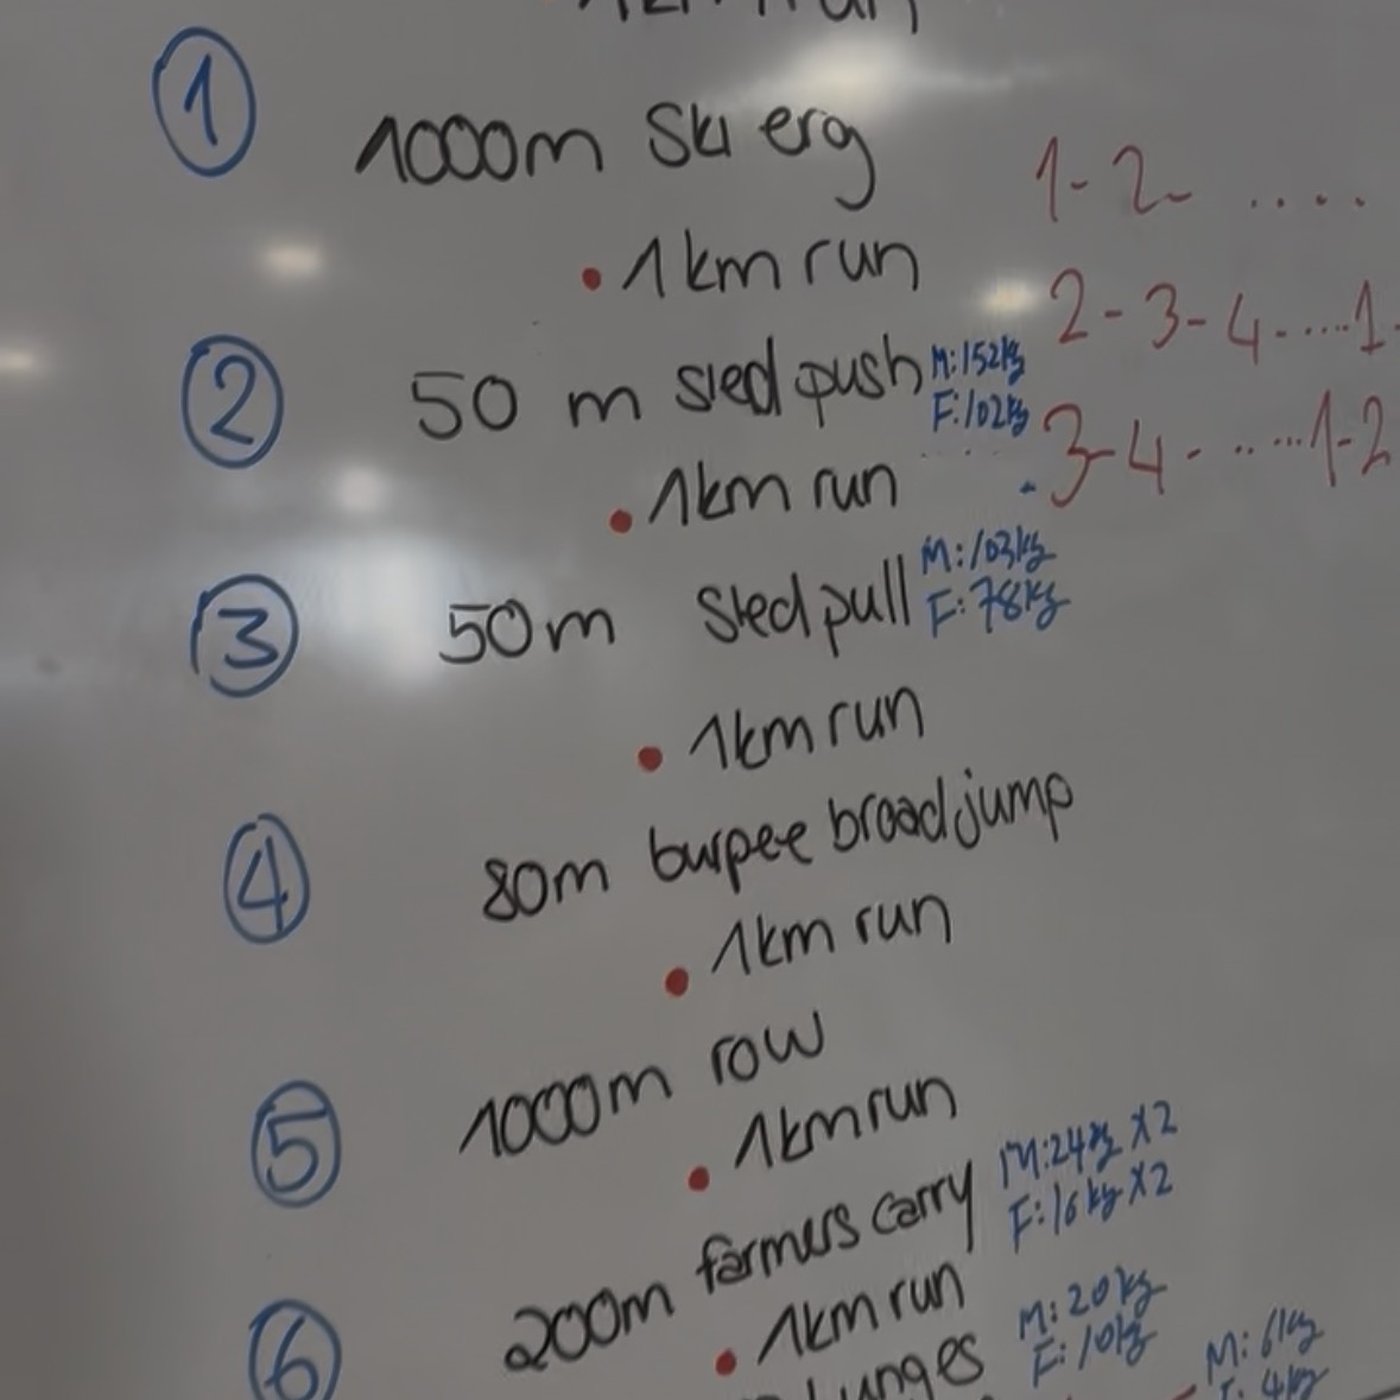 1km run
① 1000m Ski erg
• 1km run
1-2- ....
2-3-4-....1-
② 50 m sled push M:152kg
F:102kg
3-4-.....1-2
• 1km run
③ 50m Sled pull M:103kg
F:78kg
• 1km run
④ 80m burpee broad jump
• 1km run
⑤ 1000m row
• 1km run
⑥ 200m farmers carry M:24kg X2
F:16kg X2
• 1km run
lunges M:20kg
F:10kg
M:6kg
F:4kg